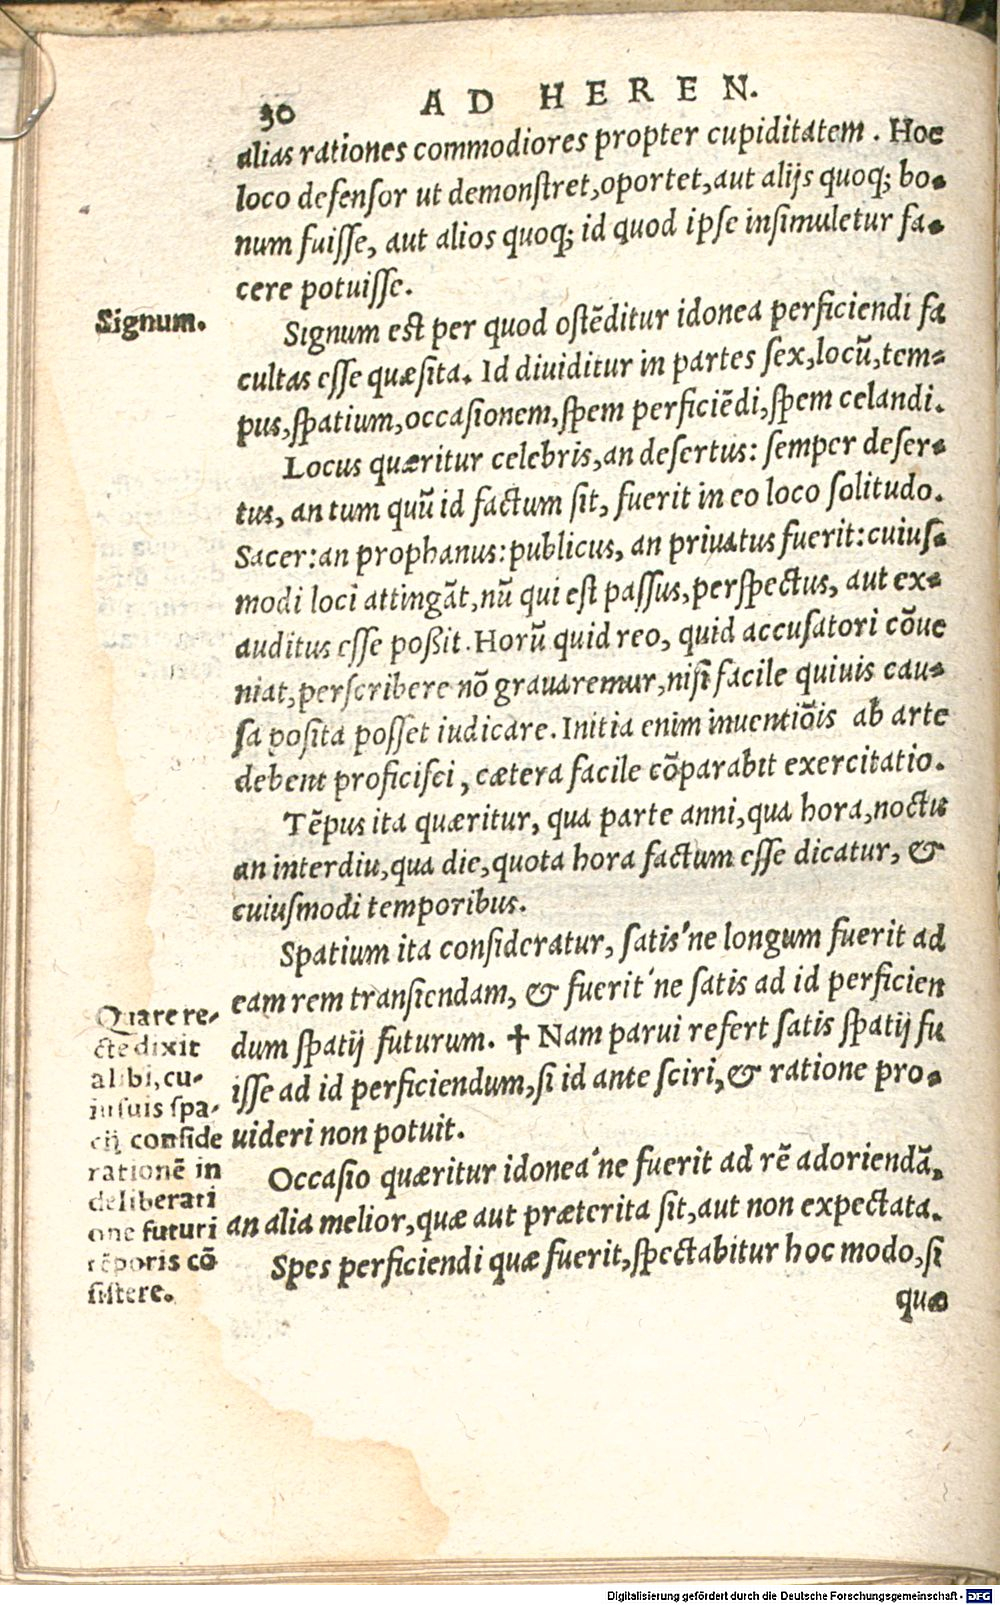 30 AD HEREN.
alias rationes commodiores propter cupiditatem. Hoc
loco defensor ut demonstret, oportet, aut alijs quoq; bo-
num fuisse, aut alios quoq; id quod ipse insimuletur fa-
cere potuisse.
Signum.
Signum est per quod ostēditur idonea perficiendi fa
cultas esse quæsita. Id diuiditur in partes sex, locū, tem-
pus, spatium, occasionem, spem perficiēdi, spem celandi.
Locus quæritur celebris, an desertus: semper deser-
tus, an tum quū id factum sit, fuerit in eo loco solitudo.
Sacer: an prophanus: publicus, an priuatus fuerit: cuius-
modi loci attingāt, nū qui est passus, perspectus, aut ex-
auditus esse poßit. Horū quid reo, quid accusatori cōue
niat, perscribere nō grauaremur, nisi facile quiuis cau-
sa posita posset iudicare. Initia enim inuentiōis ab arte
debent proficisci, cætera facile cōparabit exercitatio.
Tēpus ita quæritur, qua parte anni, qua hora, noctu
an interdiu, qua die, quota hora factum esse dicatur, &
cuiusmodi temporibus.
Spatium ita consideratur, satis'ne longum fuerit ad
eam rem transiendam, & fuerit'ne satis ad id perficien
dum spatij futurum. ✝ Nam parui refert satis spatij fu
isse ad id perficiendum, si id ante sciri, & ratione pro-
uideri non potuit.
Quare re-
cte dixit
alibi, cu-
iusuis spa-
cij conside
rationē in
deliberati
one futuri
tēporis cō
sistere.
Occasio quæritur idonea'ne fuerit ad rē adoriendā,
an alia melior, quæ aut præterita sit, aut non expectata.
Spes perficiendi quæ fuerit, spectabitur hoc modo, si
quæ
Digitalisierung gefördert durch die Deutsche Forschungsgemeinschaft - DFG